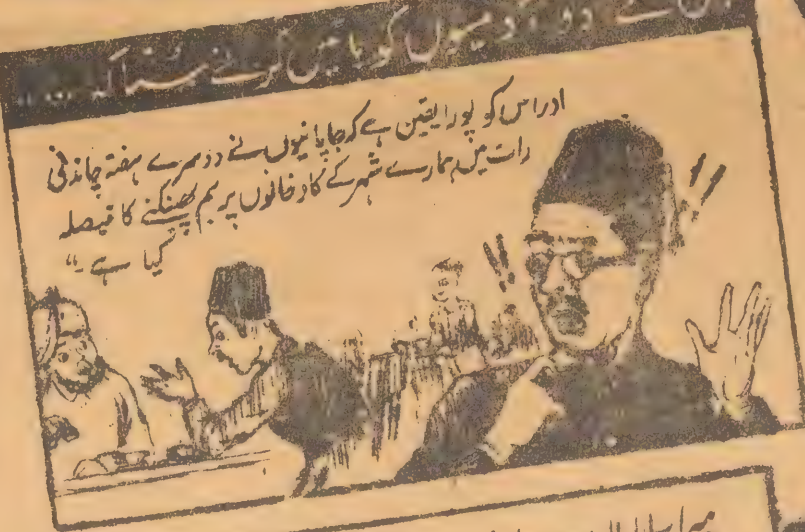 نے دو آدمیوں کو باتیں کرتے سنا کہ .....
اور اس کو پورا یقین ہے کہ جاپانیوں نے دوسرے ہفتہ چاندنی
رات میں ہمارے شہر کے کارخانوں پر بم پھینکنے کا فیصلہ
کیا ہے۔"
میرا